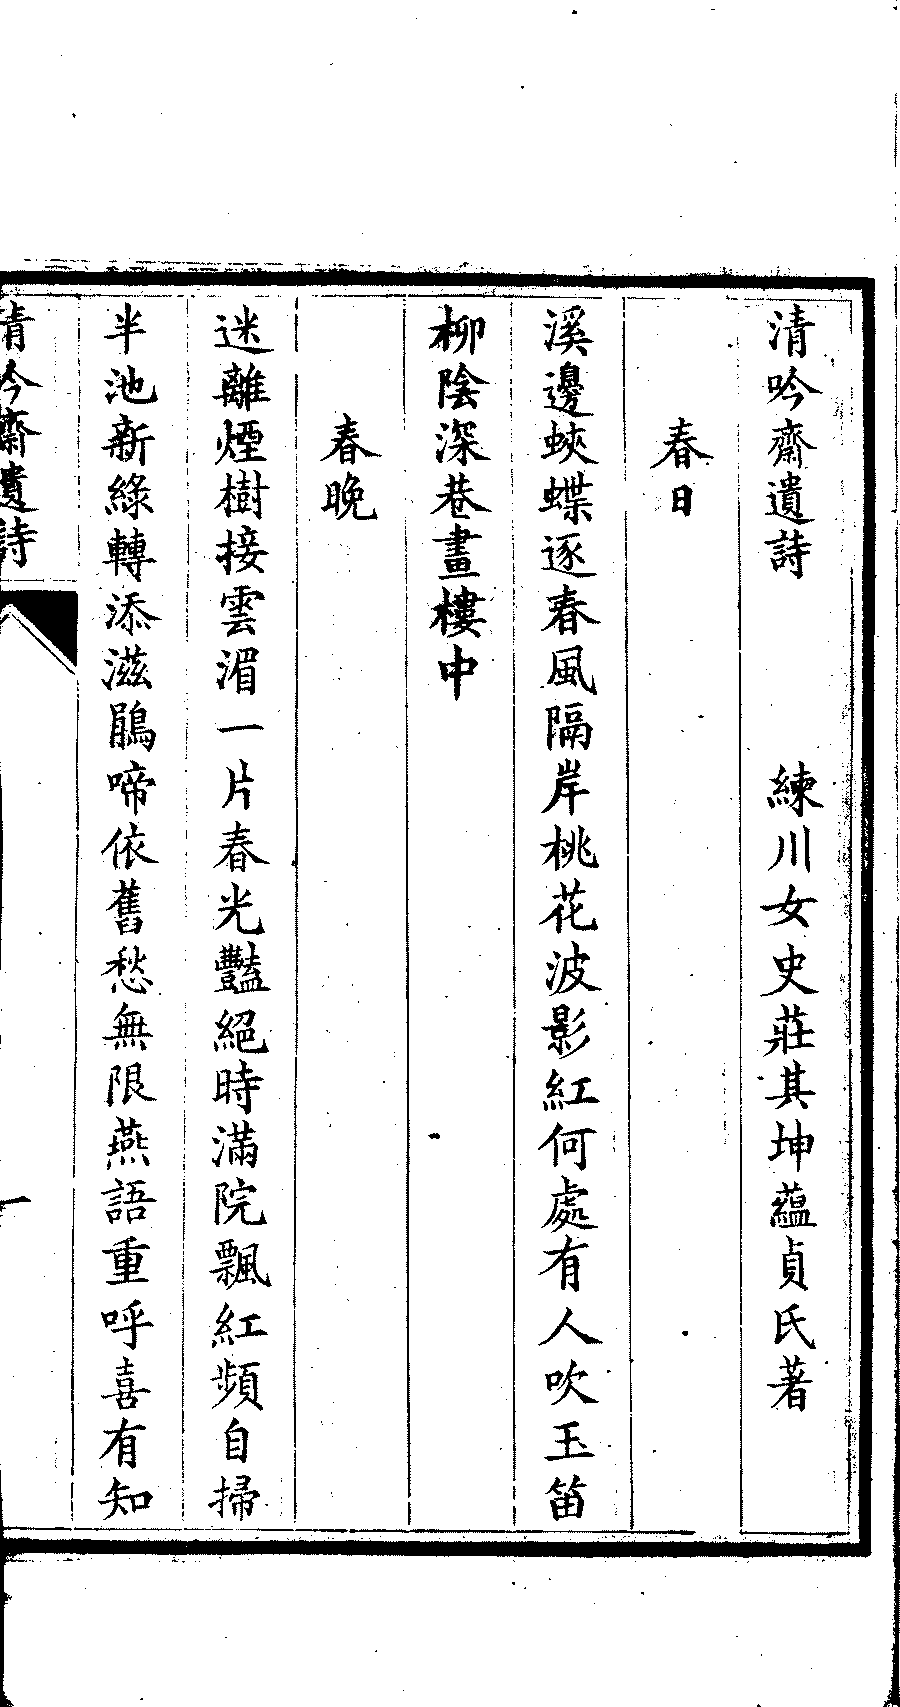 清吟齋遺詩　練川女史莊其坤蘊貞氏著
春日
溪邊蛺蝶逐春風隔岸桃花波影紅何處有人吹玉笛
柳陰深巷畫樓中
春晚
迷離煙樹接雲湄一片春光豔絕時滿院飄紅頻自掃
半池新綠轉添滋鵑啼依舊愁無限燕語重呼喜有知
清吟齋遺詩
一